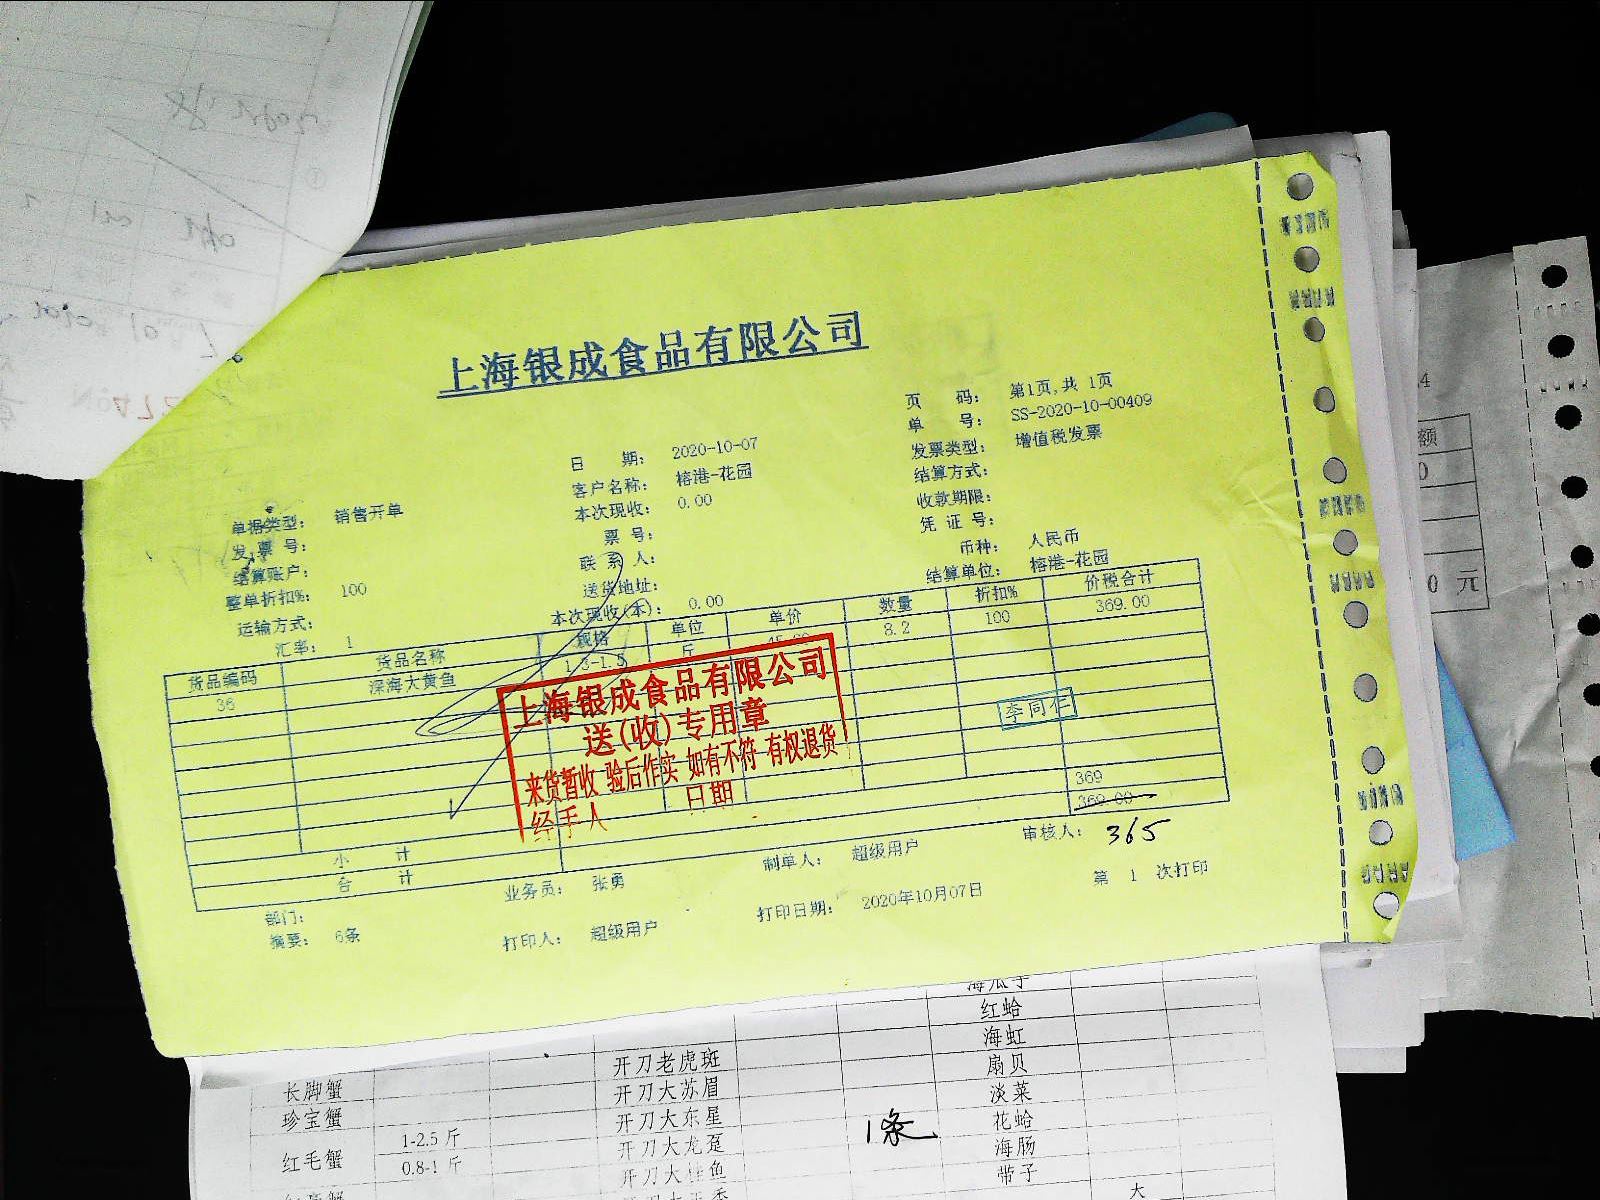 上海银成食品有限公司
页 码： 第1页,共 1页
单 号： SS-2020-10-00409
发票类型： 增值税发票
结算方式：
收款期限：
凭 证 号：
币种： 人民币
结算单位： 榕港-花园
日 期： 2020-10-07
客户名称： 榕港-花园
本次现收： 0.00
票 号：
联 系 人：
送货地址：
本次现收(本)： 0.00
单据类型： 销售开单
发 票 号：
结算账户：
整单折扣%： 100
运输方式：
汇率： 1
货品编码 货品名称 规格 单位 单价 数量 折扣% 价税合计
36 深海大黄鱼 1.3-1.5 斤 45.00 8.2 100 369.00
上海银成食品有限公司
送(收)专用章
来货暂收 验后作实 如有不符 有权退货
经手人 日期
李同仁
小 计 369
合 计 369.00
365
部门： 业务员： 张勇 制单人： 超级用户 审核人：
摘要： 6条 打印人： 超级用户 打印日期： 2020年10月07日 第 1 次打印
额
0
0 元
海瓜子
红蛤
海虹
开刀老虎斑 扇贝
长脚蟹 开刀大苏眉 淡菜
珍宝蟹 开刀大东星 1条 花蛤
红毛蟹 1-2.5 斤 开刀大龙趸 海肠
0.8-1 斤 带子
大